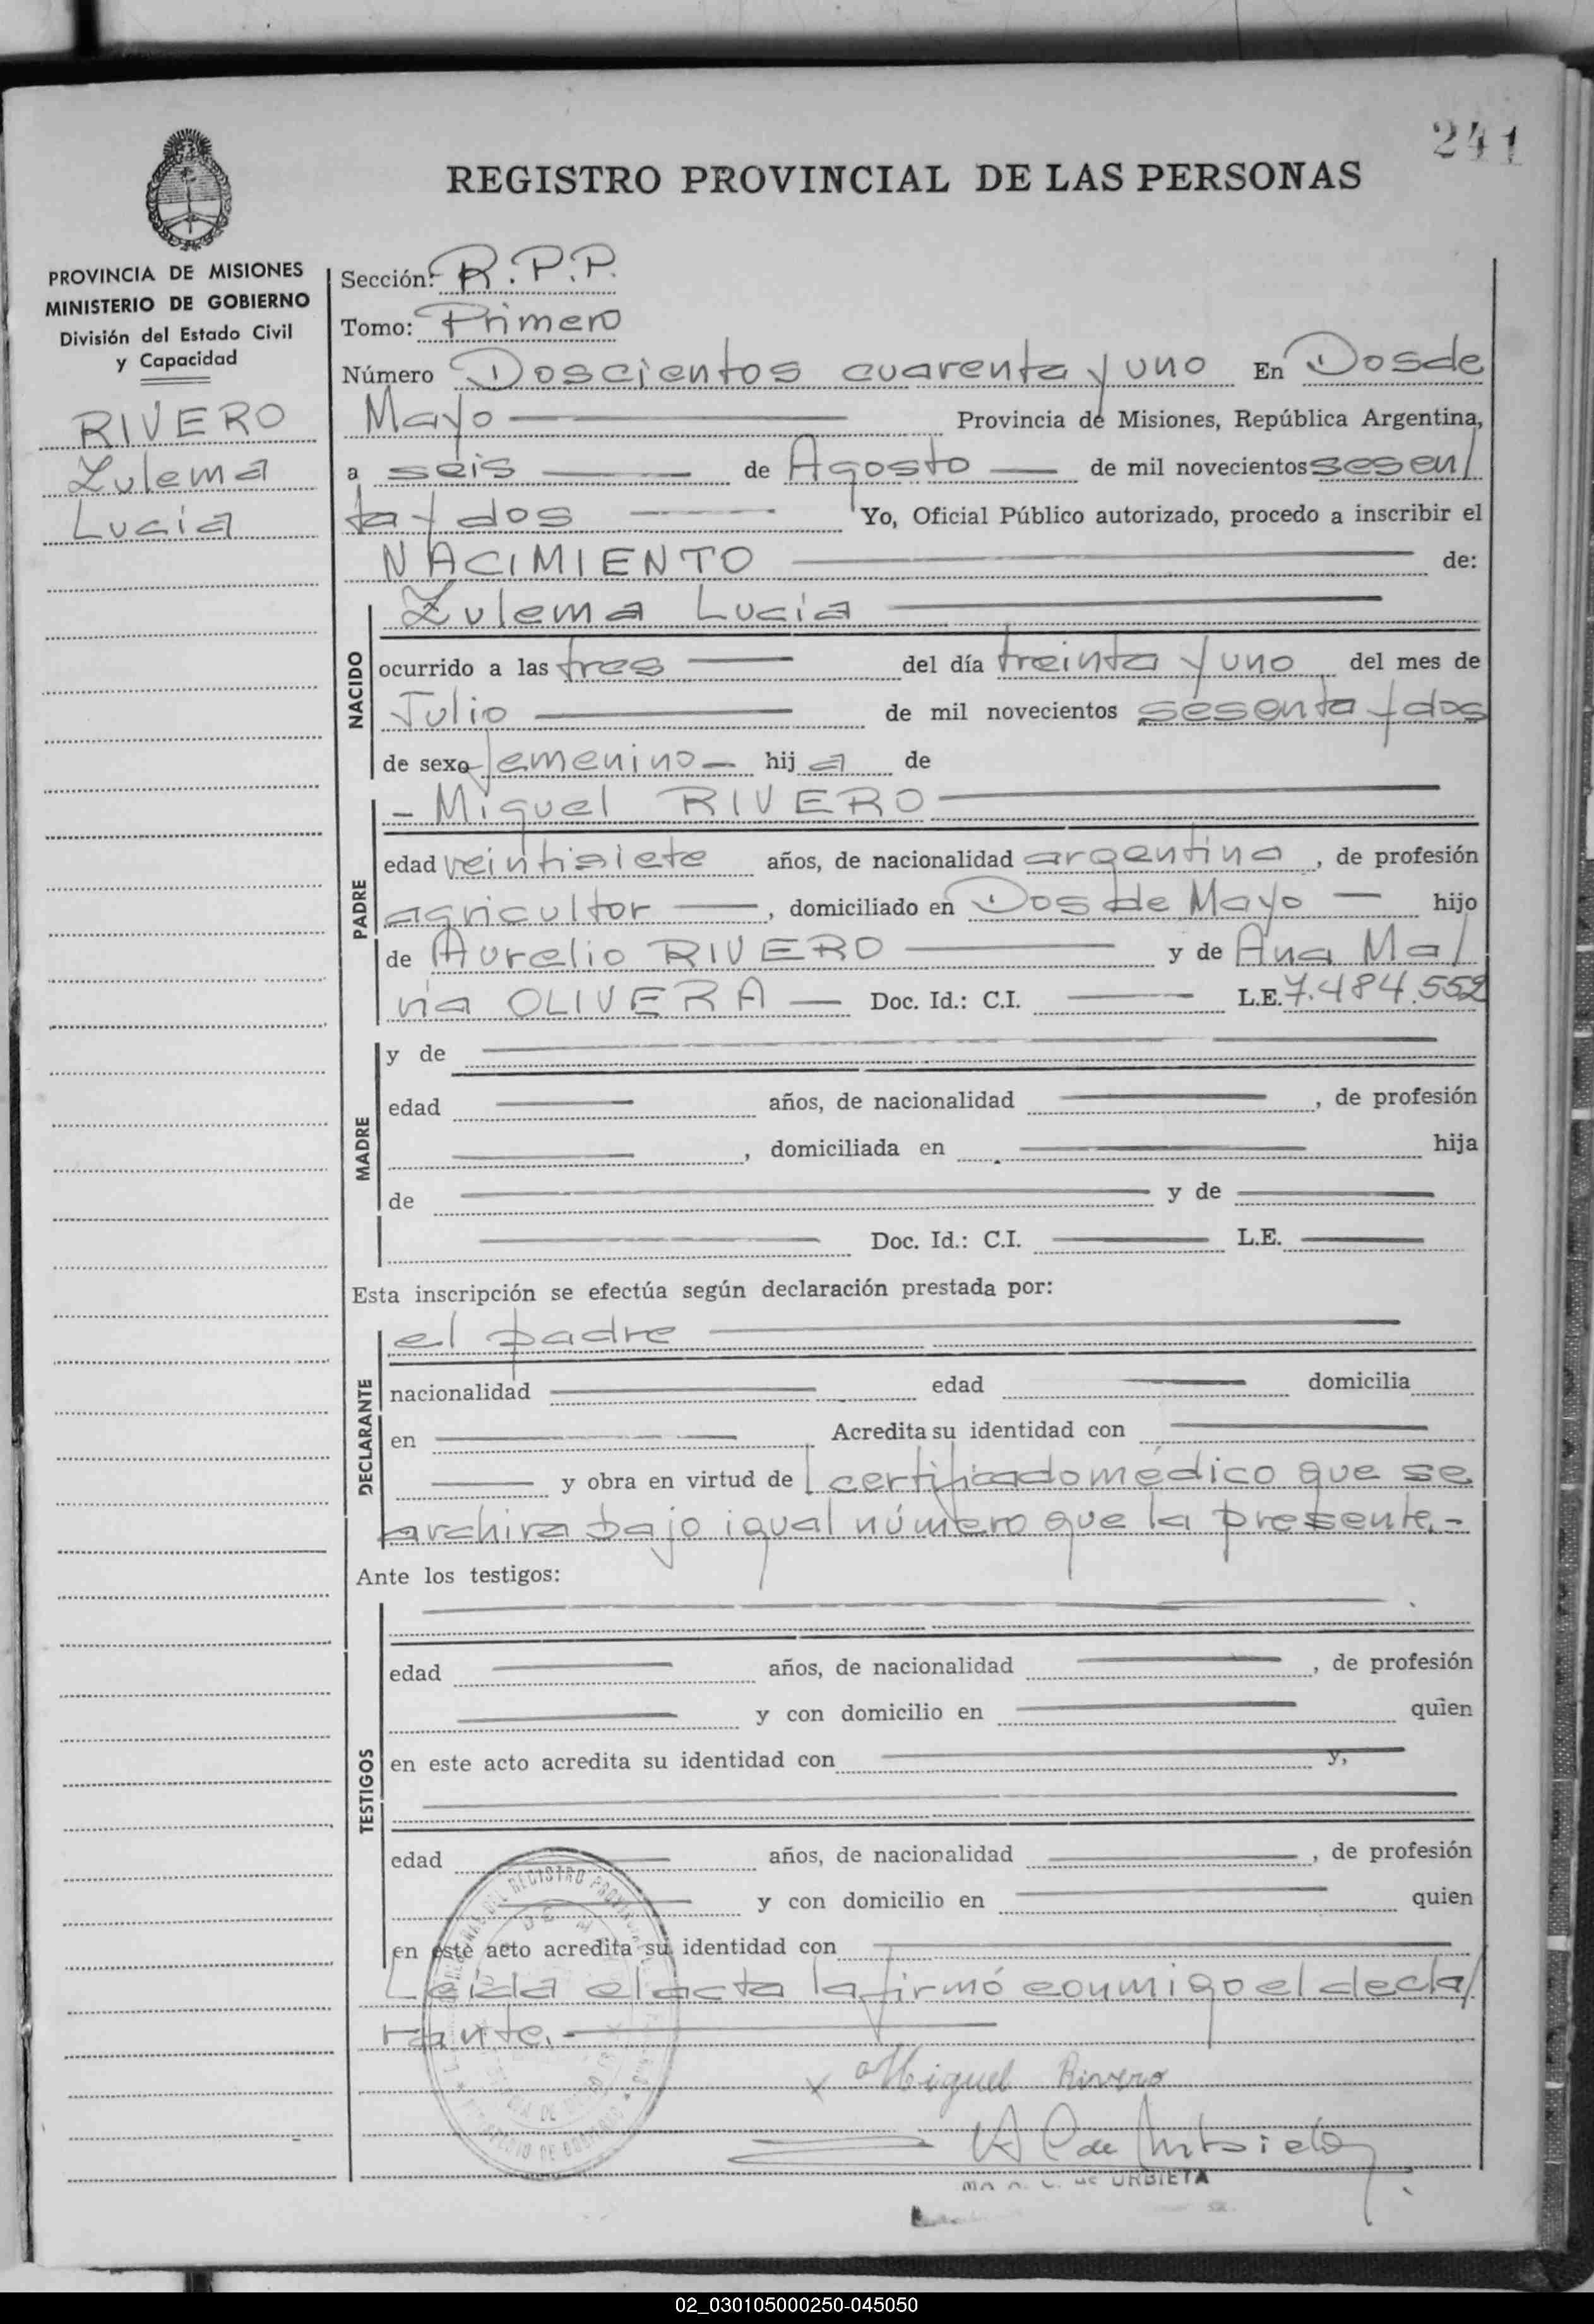 241
REGISTRO PROVINCIAL DE LAS PERSONAS
PROVINCIA DE MISIONES
MINISTERIO DE GOBIERNO
División del Estado Civil
y Capacidad
RIVERO
Zulema
Lucia
Sección: R.P.P.
Tomo: Primero
Número Doscientos cuarenta y uno En Dos de
Mayo Provincia de Misiones, República Argentina,
a seis de Agosto de mil novecientos sesen/
ta y dos Yo, Oficial Público autorizado, procedo a inscribir el
NACIMIENTO de:
NACIDO
Zulema Lucia
ocurrido a las tres del día treinta y uno del mes de
Julio de mil novecientos sesenta y dos
de sexo femenino - hij a de
PADRE
- Miguel RIVERO
edad veintisiete años, de nacionalidad argentina, de profesión
agricultor, domiciliado en Dos de Mayo hijo
de Aurelio RIVERO y de Ana Ma/
ria OLIVERA Doc. Id.: C.I. L.E. 7.484.552
MADRE
y de
edad años, de nacionalidad , de profesión
, domiciliada en hija
de y de
Doc. Id.: C.I. L.E.
Esta inscripción se efectúa según declaración prestada por:
DECLARANTE
el padre
nacionalidad edad domicilia
en Acredita su identidad con
y obra en virtud de certificado médico que se
archiva bajo igual número que la presente.-
Ante los testigos:
TESTIGOS
edad años, de nacionalidad , de profesión
y con domicilio en quien
en este acto acredita su identidad con y,
edad años, de nacionalidad , de profesión
y con domicilio en quien
en este acto acredita su identidad con
Leída el acta la firmó conmigo el decla/
rante.-
x Miguel Rivero
A C de Urbieta
de URBIETA
02_030105000250-045050